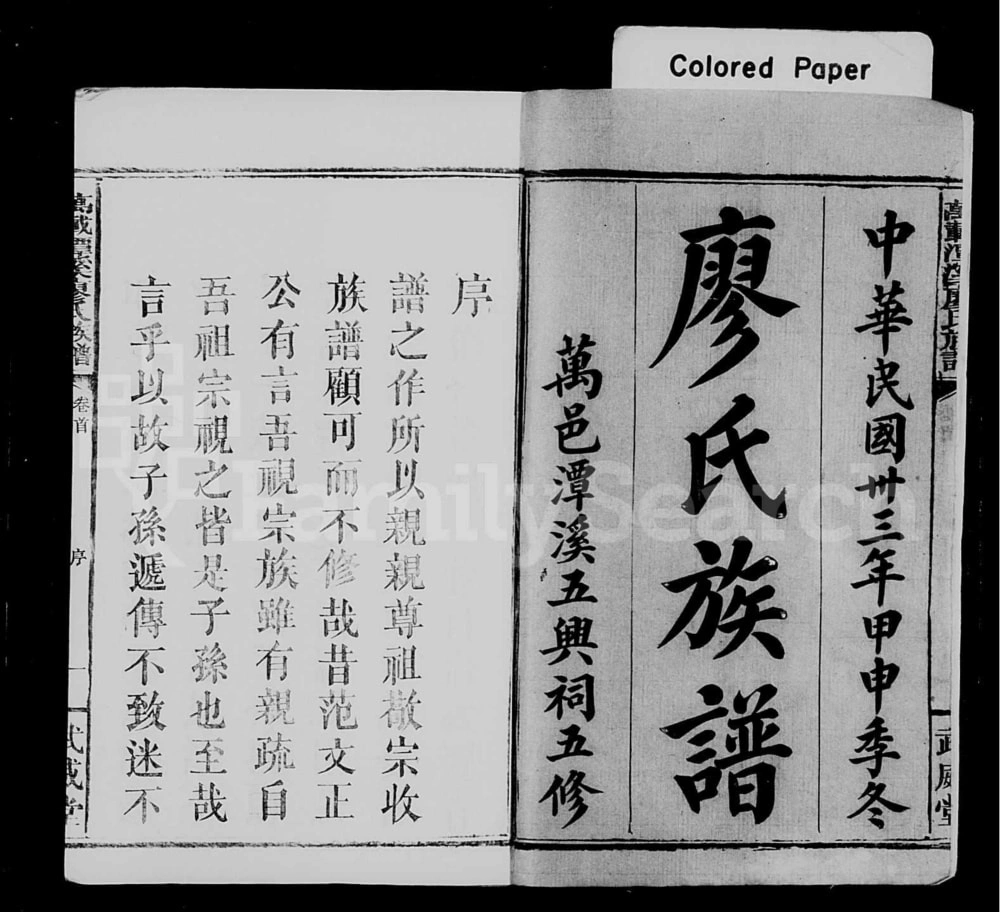 Colored Paper
中華民國卅三年甲申季冬
廖氏族譜
萬邑潭溪五興祠五修
萬載潭溪廖氏族譜
武威堂
序
譜之作所以親親尊祖敬宗收
族譜顧可而不修哉昔范文正
公有言吾視宗族雖有親疏自
吾祖宗視之皆是子孫也至哉
言乎以故子孫遞傳不致迷不
萬載潭溪廖氏族譜
卷首
序
一
武威堂
FamilySearch